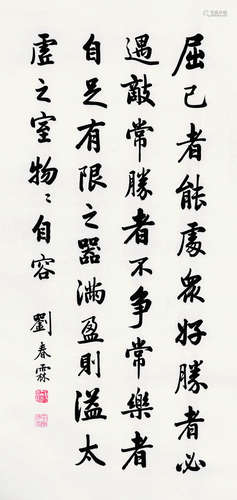 屈己者能處眾好勝者必
遇敵常勝者不爭常樂者
自足有限之器滿盈則溢太
虛之室物〻自容
劉春霖